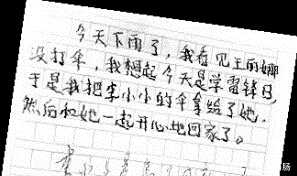 今天下雨了，我看见王丽娜
没打伞，我想起今天是学雷锋日，
于是我把李小小的伞拿给了她，
然后和她一起开心地回家了。